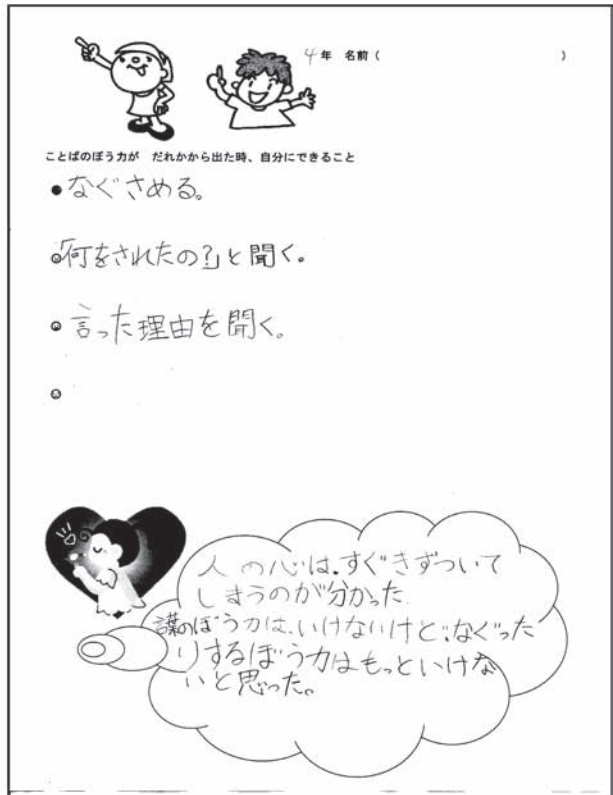 4年 名前（ ）
ことばのぼう力が だれかから出た時、自分にできること
●なぐさめる。
「何をされたの?」と聞く。
言った理由を聞く。
人の心は、すぐきずついて
しまうのが分かった
のぼう力は、いけないけど、なぐった
りするぼう力はもっといけな
いと思った。